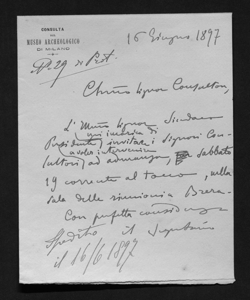 CONSULTA
DEL
MUSEO ARCHEOLOGICO
DI MILANO
16 Giugno 1897
N. 29 di Prot.
Chmo Signor Consultore,
L'Illmo Signor Sindaco
(Presidente) invitare i Signori Con-
sultori) ad adunanza sabbato
19 corrente al tocco, nella
sala delle riunioni a Brera.
Con perfetta considerazione
Spedito il Segretario
il 16/6 1897